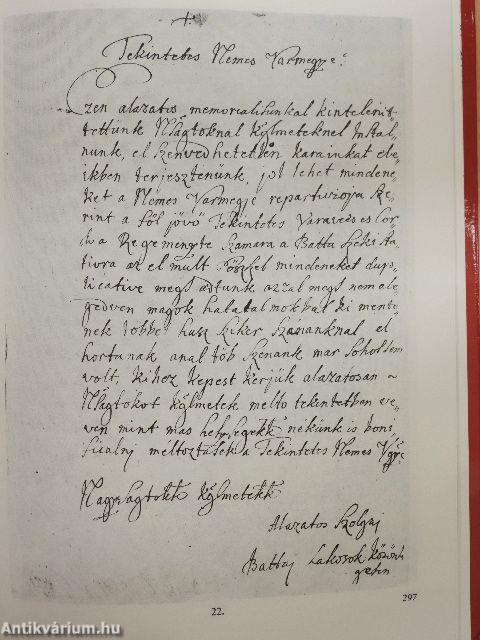 +
Tekintetes Nemes Varmegye:
Ezen alazatos memorialisunkal kintelenit-
tettünk Nságtoknal kglmeteknel Instal-
nunk, el szenvedhetetlen karainkat ele-
ikben terjesztenünk, jol lehet mindene-
ket a Nemes Varmegje repartitioja sze-
rint a föl jövö Tekintetes
Regemengye szamara a Battai Széki sta-
tivra az el mult Összel mindeneket dup-
licative megs adtunk azzal megs nem ele-
gedven magok hatalmokbul ki mente-
nek többet husz szeker Szénanknal el
hortanak anal töb szenank mar soholsem
volt, kihez kepest kerjük alazatosan
Nságtokot kglmetek melto tekintetben ve-
ven mint mas helysegekk nekünk is boni-
ficalnj meltoztassék a Tekintetes Nemes Vgye
Nagysagtokk kglmetekk
Alazatos Szolgaj
Battaj Lakosok közönsé-
gessen
297
22.
Antikvárium.hu